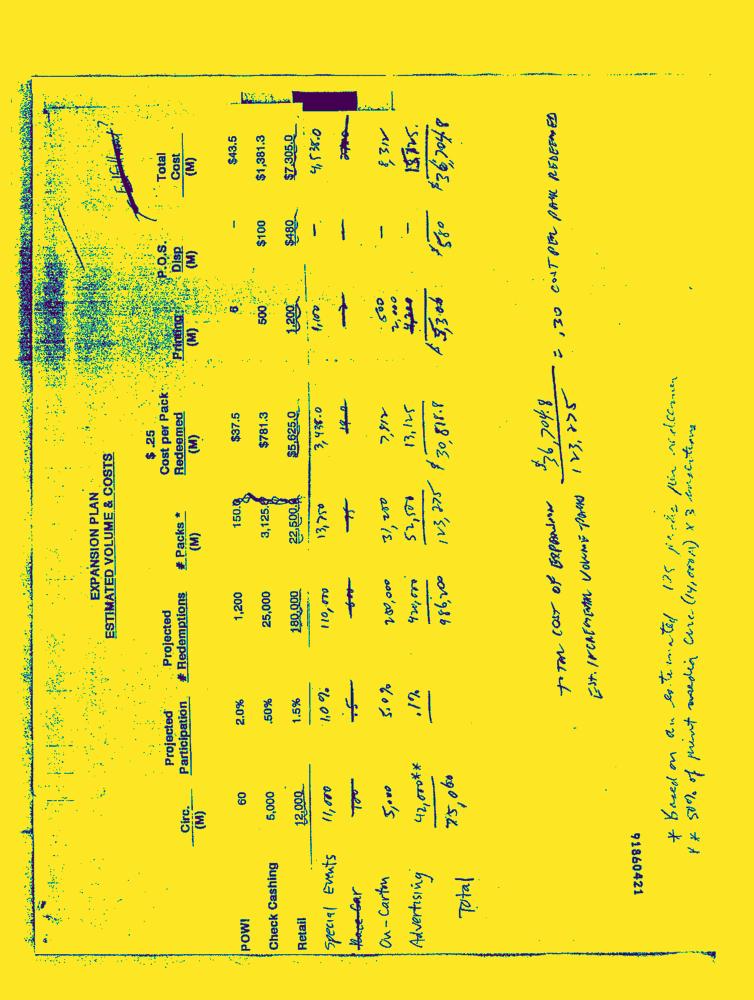 EXPANSION PLAN
ESTIMATED VOLUME & COSTS
Fulfillment?
Circ. (M) Projected Participation Projected # Redemptions # Packs * (M) $ .25 Cost per Pack Redeemed (M) Printing (M) P.O.S. Disp (M) Total Cost (M)
POW! 60 2.0% 1,200 150.0 $37.5 6 - $43.5
Check Cashing 5,000 .50% 25,000 3,125. $781.3 500 $100 $1,381.3
Retail 12,000 1.5% 180,000 22,500. $5,625.0 1,200 $480 $7,305.0
Special Events 11,000 1.0% 110,000 13,750 3,438.0 1,100 - 4,538.0
Race Car .5 -
On-Carton 5,000 5.0% 250,000 31,200 7,812 500 - 8,312
Advertising 42,000** .1% 420,000 52,500 13,125 2,000 - 15,125.
Total 75,060 986,200 123,275 $30,818.8 $5,306 $580 $36,704.8
TOTAL COST OF EXPANSION $36,704.8 = .30 COST PER PACK REDEEMED
EST. INCREMENTAL VOLUME 123,275
* Based on an estimated 125 packs per redeemer
** 50% of print media circ. (14,000M) x 3 insertions
91860421